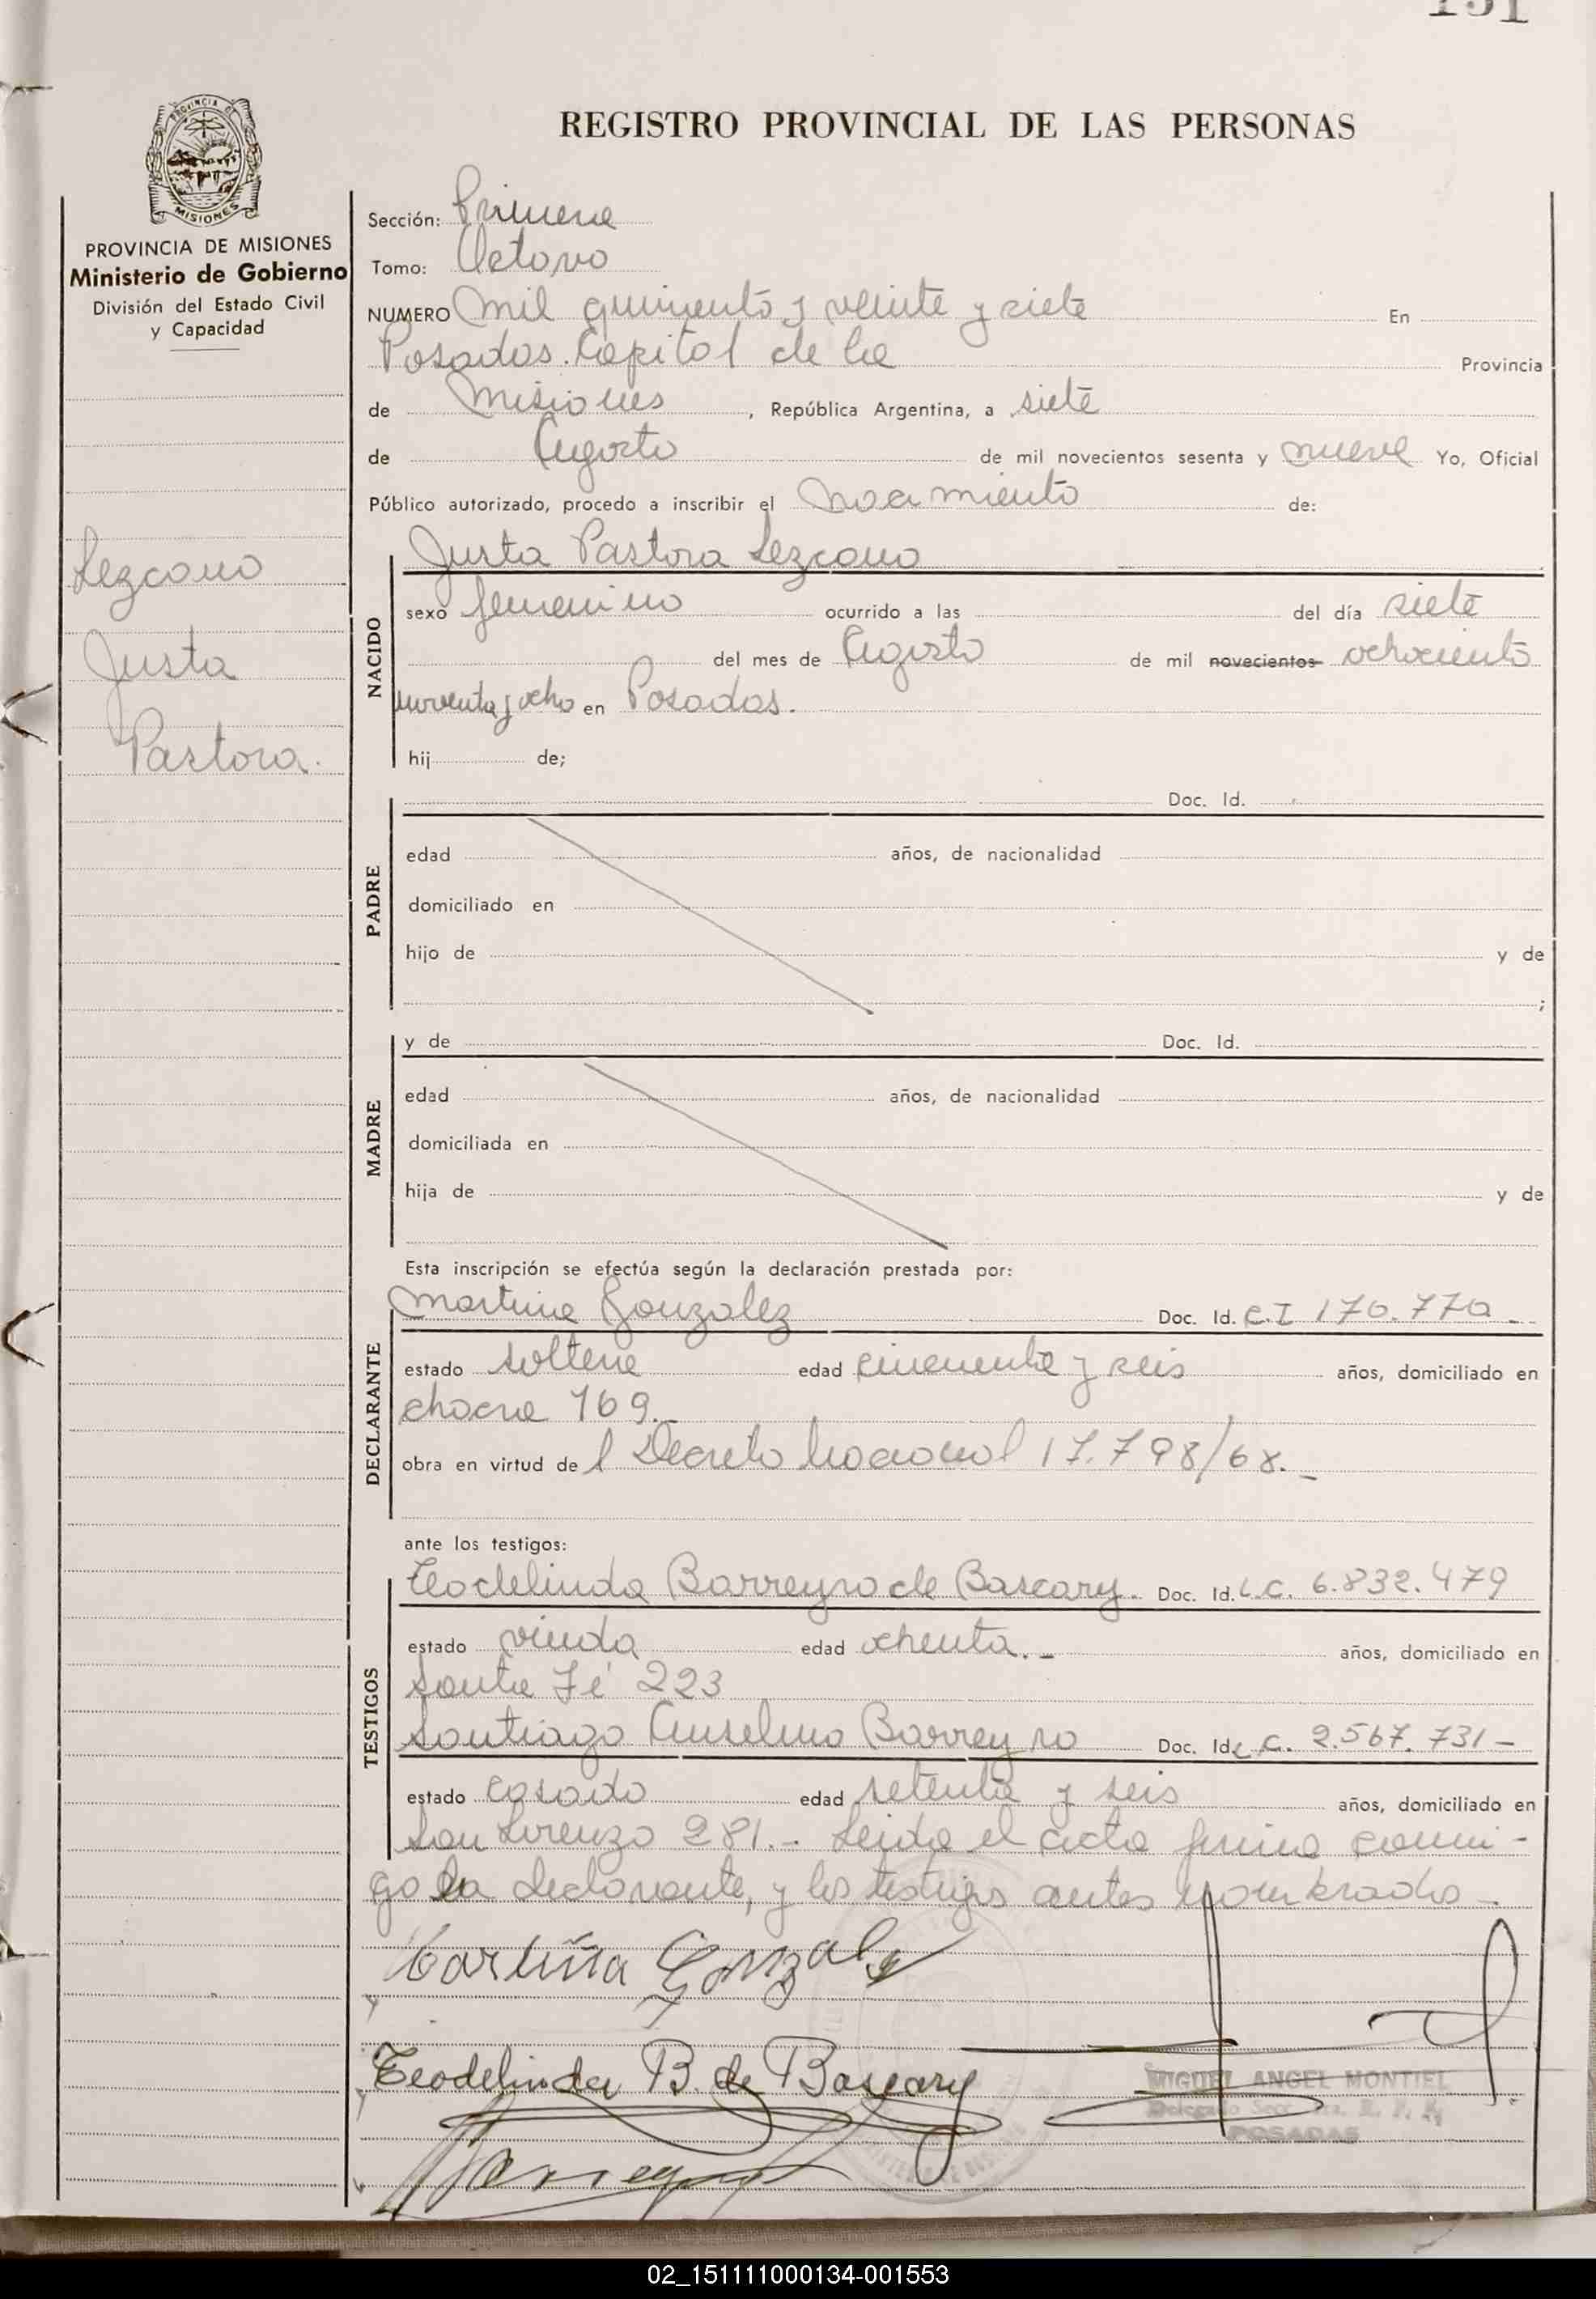 151
PROVINCIA DE MISIONES
MISIONES
REGISTRO PROVINCIAL DE LAS PERSONAS
PROVINCIA DE MISIONES
Ministerio de Gobierno
División del Estado Civil
y Capacidad
Lezcano
Justa
Pastora.
Sección: Primera
Tomo: Octavo
NUMERO Mil quinientos y veinte y siete En
Posadas. Capital de la Provincia
de Misiones, República Argentina, a siete
de Agosto de mil novecientos sesenta y nueve Yo, Oficial
Público autorizado, procedo a inscribir el nacimiento de:
NACIDO
Justa Pastora Lezcano
sexo femenino ocurrido a las del día siete
del mes de Agosto de mil novecientos ochociento
noventa y ocho en Posadas.
hij de;
PADRE
Doc. Id.
edad años, de nacionalidad
domiciliado en
hijo de y de
;
MADRE
y de Doc. Id.
edad años, de nacionalidad
domiciliada en
hija de y de
Esta inscripción se efectúa según la declaración prestada por:
DECLARANTE
Martina Gonzalez Doc. Id. C.I 170.770.-
estado soltera edad cincuenta y seis años, domiciliado en
chacra 169.
obra en virtud de l Decreto Nacional 17.798/68.-
ante los testigos:
TESTIGOS
Teodelinda Barreyro de Bascary. Doc. Id. L.C. 6.832.479
estado viuda edad ochenta.- años, domiciliado en
Santa Fé 223
Santiago Anselmo Barreyro Doc. Id. 2.567.731-
estado casado edad setenta y seis años, domiciliado en
San Lorenzo 281.- Leida el acta firma conmi-
go la declarante, y los testigos antes nombrados-
Martina Gonzalez
Teodelinda B. de Bascary
MIGUEL ANGEL MONTIEL
Delegado Secc. 1ra. R. P. P.
POSADAS
Barreyro
02_151111000134-001553